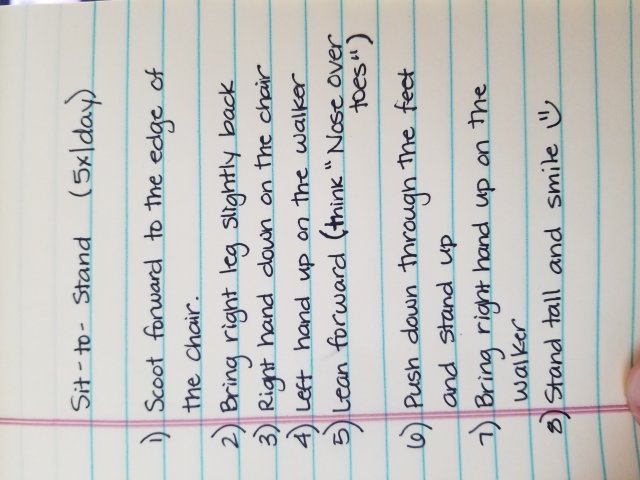 Sit-to-Stand (5x/day)
1) Scoot forward to the edge of
the chair.
2) Bring right leg slightly back
3) Right hand down on the chair
4) Left hand up on the walker
5) Lean forward (think "Nose over
toes")
6) Push down through the feet
and stand up
7) Bring right hand up on the
walker
8) Stand tall and smile ☺